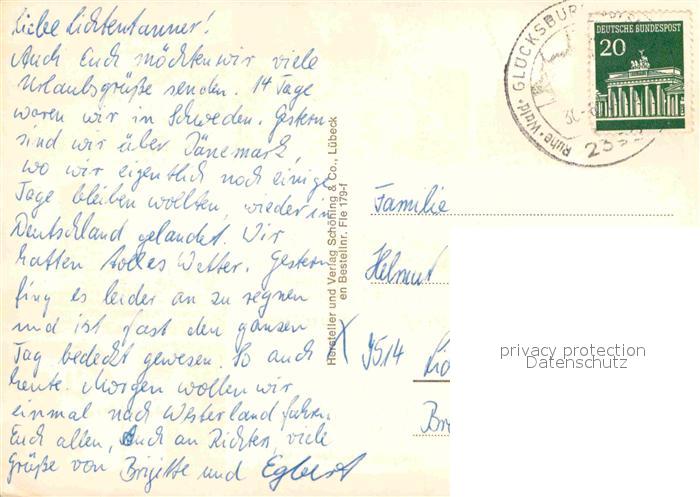 Liebe Lichtentanner!
Auch Euch möchten wir viele
Urlaubsgrüße senden. 14 Tage
waren wir in Schweden. Gestern
sind wir über Dänemark,
wo wir eigentlich noch einige
Tage bleiben wollten, wieder in
Deutschland gelandet. Wir
hatten tolles Wetter. Gestern
fing es leider an zu regnen
und ist fast den ganzen
Tag bedeckt gewesen. So auch
heute. Morgen wollen wir
einmal nach Westerland fahren.
Euch allen, auch an Richters, viele
Grüße von Brigitte und Egbert
Hersteller und Verlag Schöning & Co., Lübeck
en Bestellnr. Fle 179-f
GLÜCKSBURG
Ruhe · Wald ·
DEUTSCHE BUNDESPOST
20
Familie
Helmut
9514
privacy protection
Datenschutz